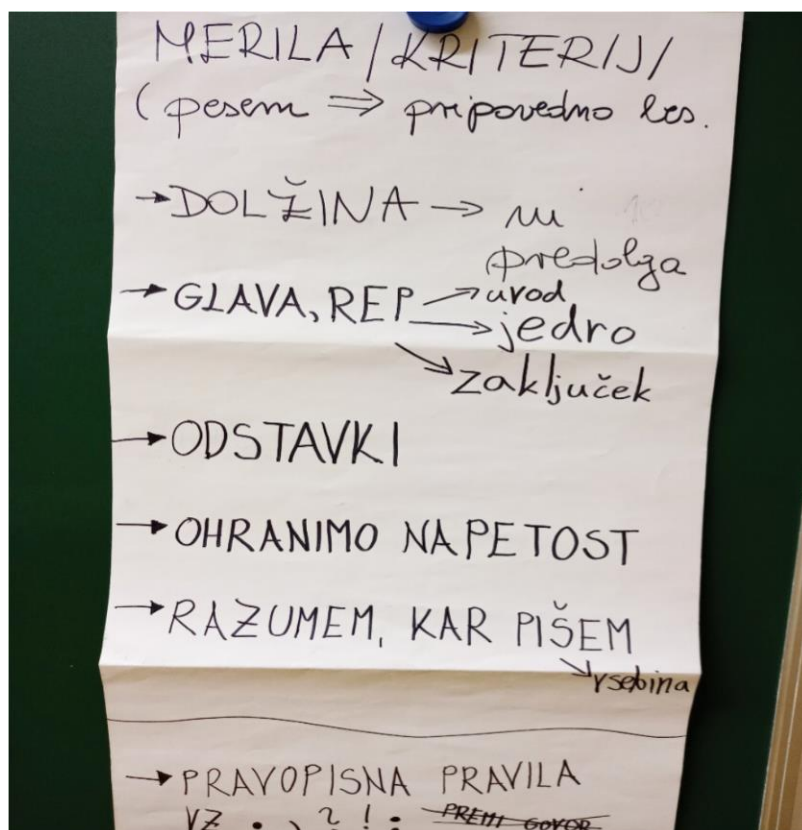 MERILA / KRITERIJI
(pesem ⇒ pripovedno bes.
→ DOLŽINA → ni
predolga
→ GLAVA, REP → uvod
→ jedro
→ zaključek
→ ODSTAVKI
→ OHRANIMO NAPETOST
→ RAZUMEM, KAR PIŠEM
→ vsebina
→ PRAVOPISNA PRAVILA
VZ . , ? ! : PREMI GOVOR